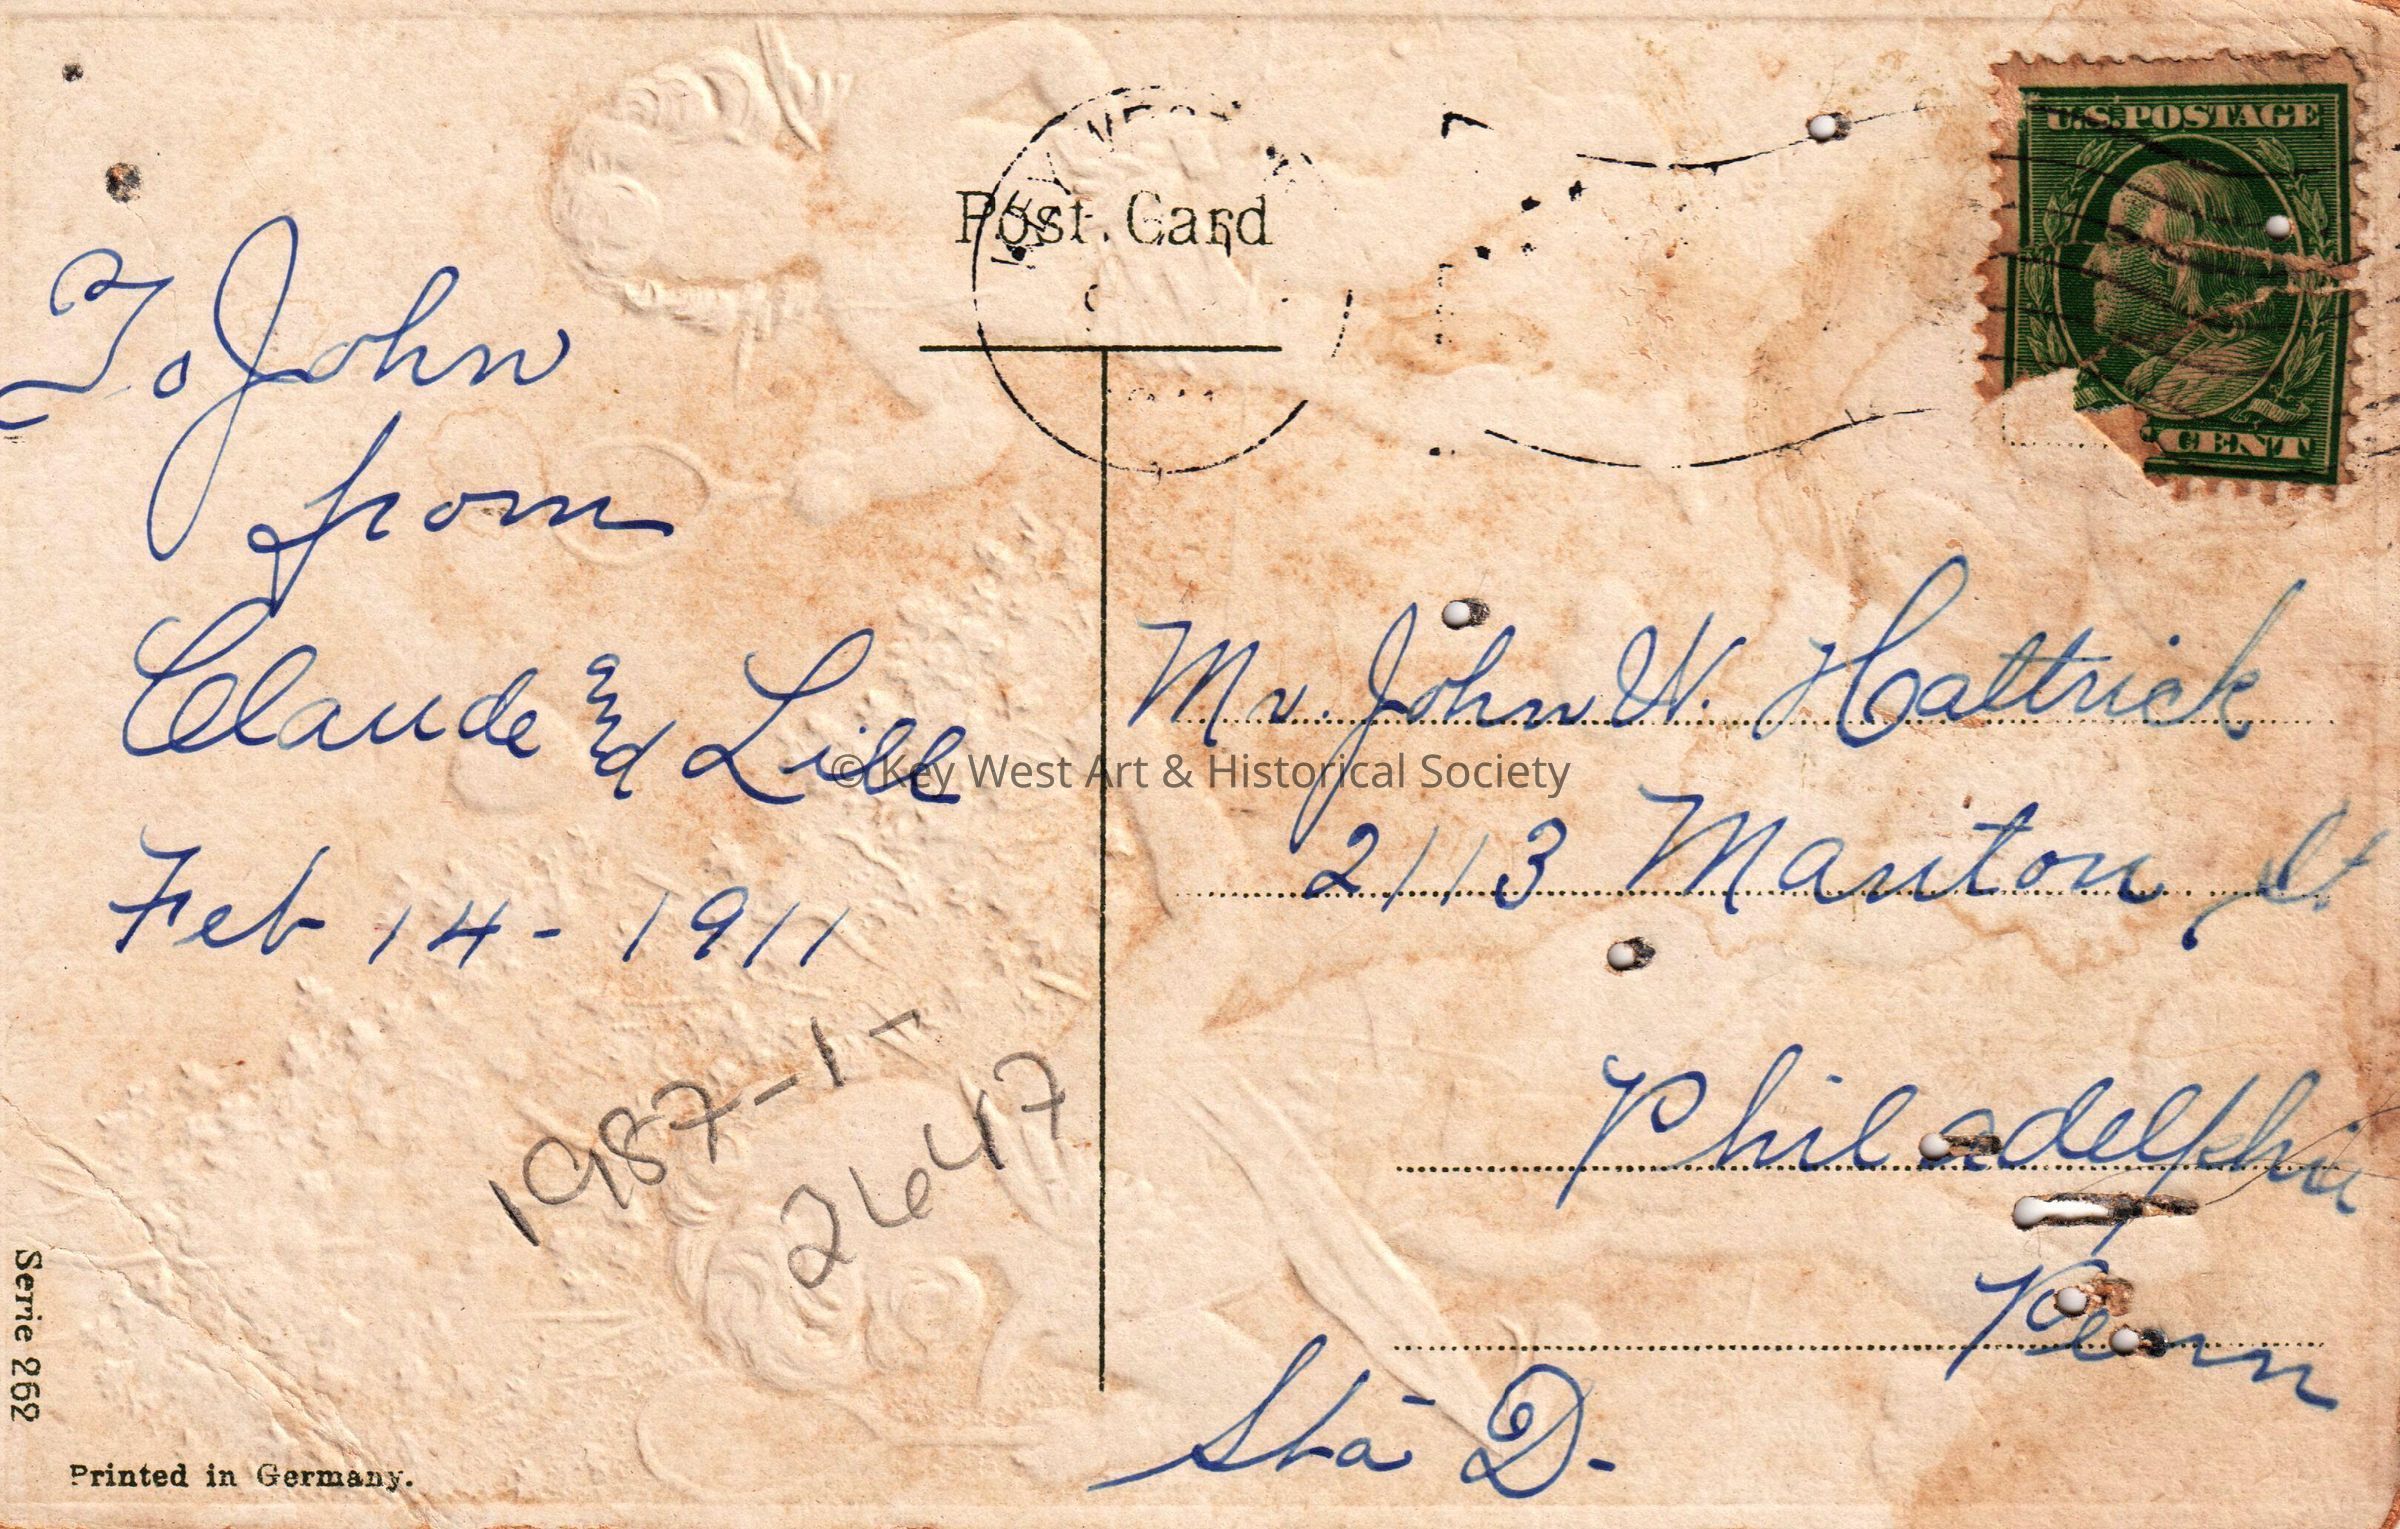 Post Card
KEY WEST
U.S. POSTAGE
CENT
To John
from
Claude and Lill
Feb 14 - 1911
Mr. John W. Hattrick
2113 Manton St
Philadelphia
Penn
Sta D.
1987-1-
2647
Serie 262
Printed in Germany.
© Key West Art & Historical Society